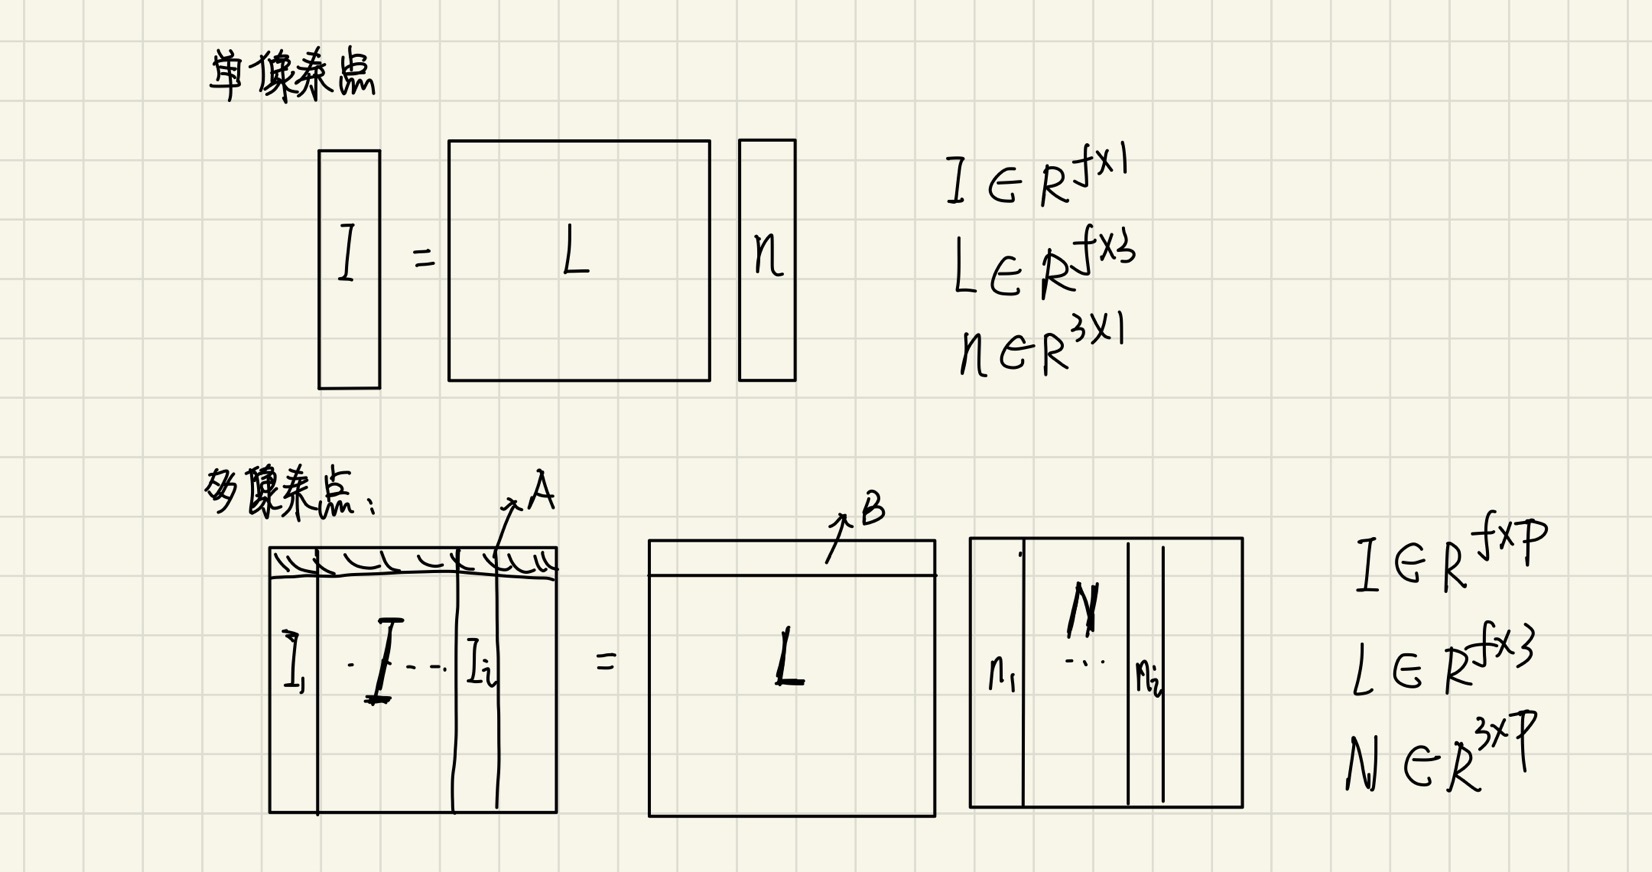 单像素点
I = L n
I ∈ R^{f×1}
L ∈ R^{f×3}
n ∈ R^{3×1}
多像素点:
A
B
I₁ ·I···· Iᵢ = L n₁ N ··· nᵢ
I ∈ R^{f×P}
L ∈ R^{f×3}
N ∈ R^{3×P}